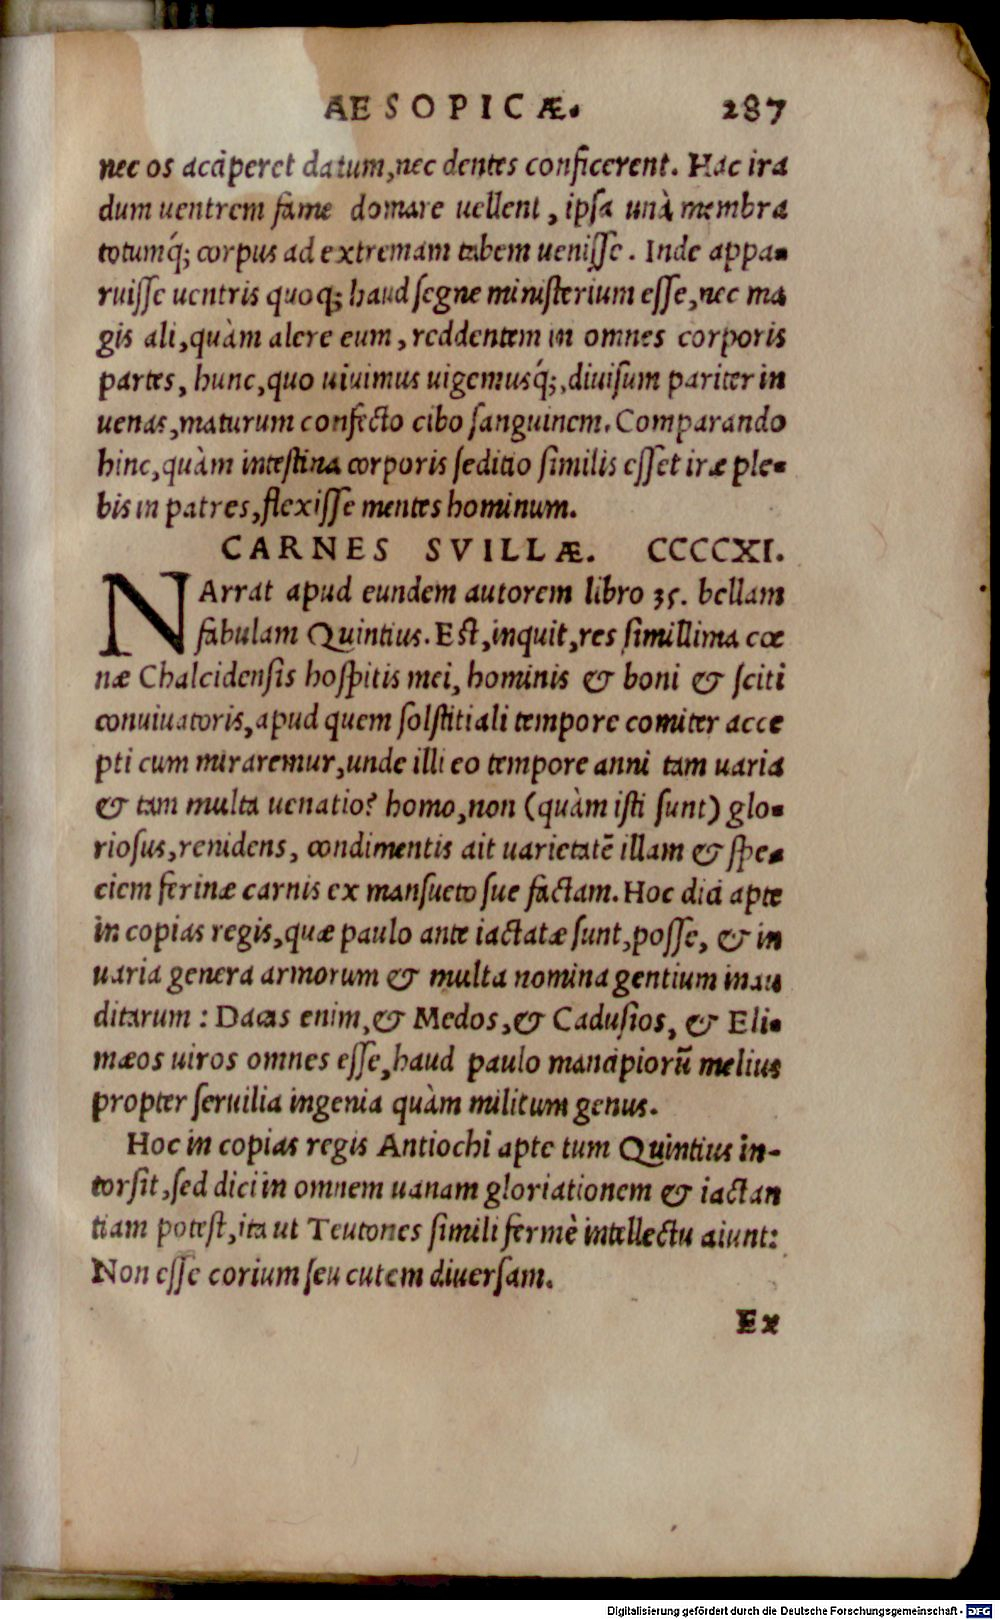 AESOPICÆ. 287
nec os acciperet datum, nec dentes conficerent. Hac ira
dum uentrem fame domare uellent, ipsa unà membra
totumq́; corpus ad extremam tabem uenisse. Inde appa-
ruisse uentris quoq; haud segne ministerium esse, nec ma
gis ali, quàm alere eum, reddentem in omnes corporis
partes, hunc, quo uiuimus uigemusq́;, diuisum pariter in
uenas, maturum confecto cibo sanguinem. Comparando
hinc, quàm intestina corporis seditio similis esset iræ ple-
bis in patres, flexisse mentes hominum.
CARNES SVILLÆ. CCCCXI.
NArrat apud eundem autorem libro 35. bellam
fabulam Quintius. Est, inquit, res simillima cœ
næ Chalcidensis hospitis mei, hominis & boni & sciti
conuiuatoris, apud quem solstitiali tempore comiter acce
pti cum miraremur, unde illi eo tempore anni tam uaria
& tam multa uenatio? homo, non (quàm isti sunt) glo-
riosus, renidens, condimentis ait uarietatē illam & spe-
ciem ferinæ carnis ex mansueto sue factam. Hoc dici apte
in copias regis, quæ paulo ante iactatæ sunt, posse, & in
uaria genera armorum & multa nomina gentium inau
ditarum : Dacas enim, & Medos, & Cadusios, & Eli-
mæos uiros omnes esse, haud paulo mancipiorū melius
propter seruilia ingenia quàm militum genus.
Hoc in copias regis Antiochi apte tum Quintius in-
torsit, sed dici in omnem uanam gloriationem & iactan
tiam potest, ita ut Teutones simili fermè intellectu aiunt:
Non esse corium seu cutem diuersam.
Ex
Digitalisierung gefördert durch die Deutsche Forschungsgemeinschaft - DFG